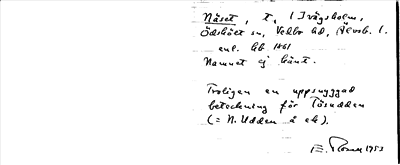 Näset, t, (Ivägsholm,
Ödskölt sn, Vedbo hd, Älvsb. l.
enl. Gb 1861
Namnet ej känt.
Troligen en uppsnyggad
beteckning för Tösudden
(= N. Udden å ek).
E. Rosell 1953